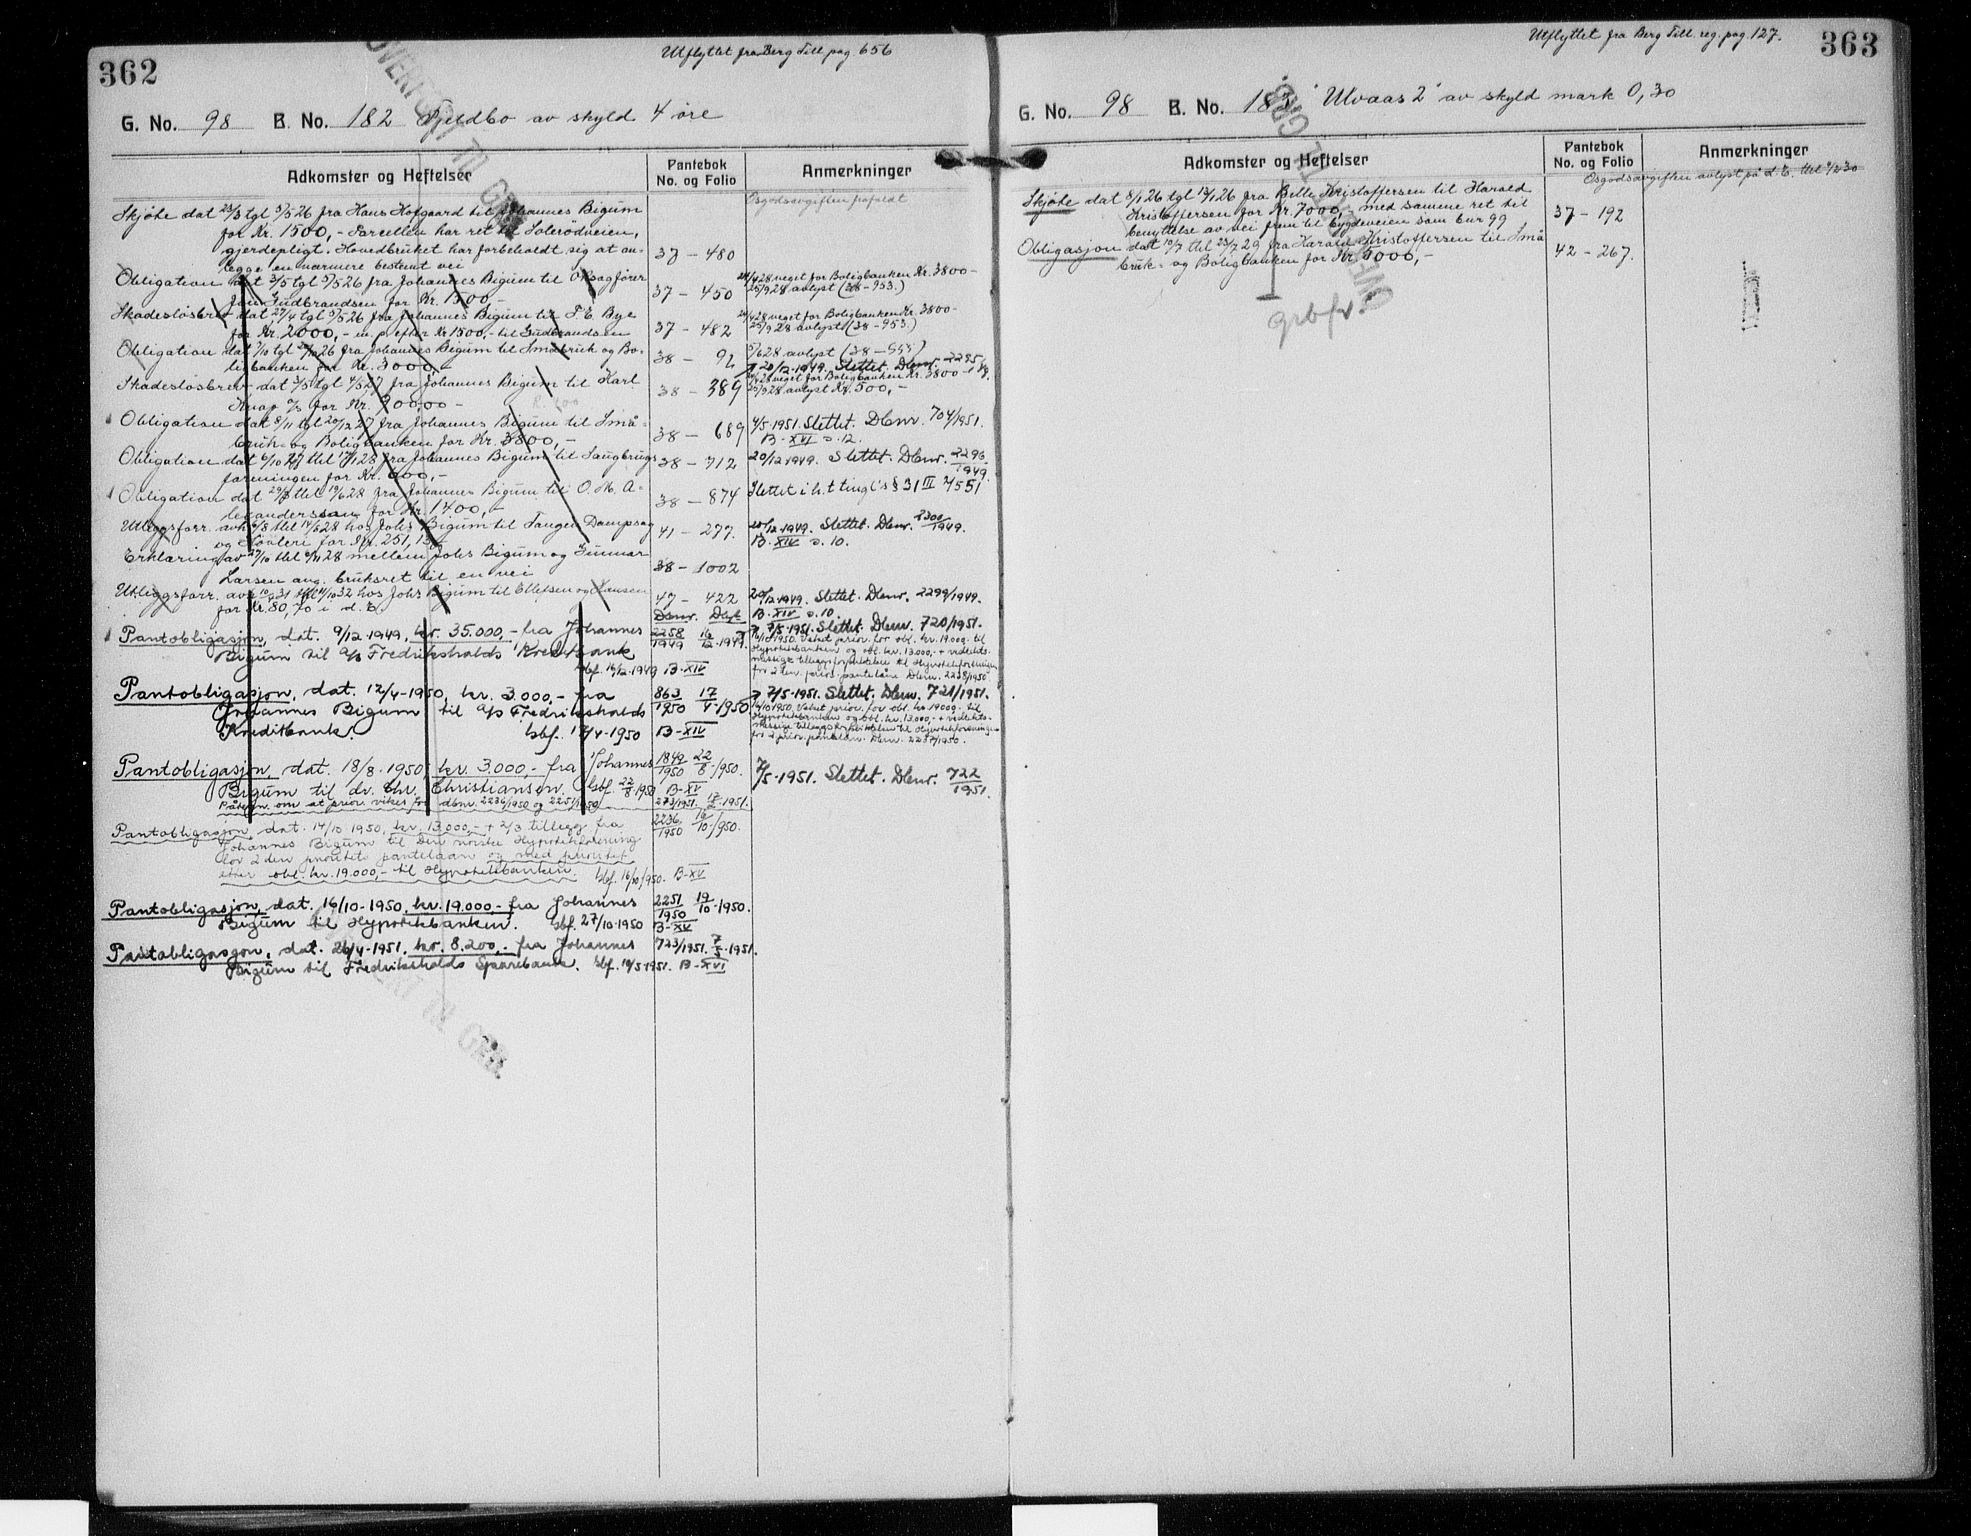 Utflyttet fra Berg Till pag 656
362
G. No. 98 B. No. 182 Fjeldbo av skyld 4 øre
OVERFØRT TIL GRB.
Adkomster og Heftelser
Pantebok No. og Folio
Anmerkninger
Osgodsavgiften frafaldt
Skjøte dat 23/3 tgl 5/5 26 fra Hans Hofgaard til Johannes Bigum
for Kr. 1500,- Parcellen har ret til Solerødveien,
gjerdepligt. Hovedbruket har forbeholdt sig at an-
lægge en nærmere bestemt vei 37 - 480
Obligation dat 3/5 tgl 5/5 26 fra Johannes Bigum til O.R.sagfører
Gudbrandsen for Kr. 1500,- 37 - 450 veget for Boligbanken Kr. 3800 -
25/9 28 avlyst (38 - 953.)
Skadesløsbrev dat 27/4 tgl 5/5 26 fra Johannes Bigum til T. E. Bye
for Kr. 2000,- m. p. efter Kr 1500,- til Gudbrandsen 37 - 482 veget for Boligbanken Kr. 3800 -
25/9 28 avlyst (38 - 953.)
Obligation dat 7/10 tgl 26 fra Johannes Bigum til Småbruk og Bo-
ligbanken for Kr. 3000,- 38 - 92 28 avlyst (38 - 955)
20/12-1949. Slettet. Dbnr. 2295
Skadesløsbrev dat tgl 27 fra Johannes Bigum til Karl
Knap for Kr. 38 - 389 veget for Boligbanken Kr. 3800
25/9 28 avlyst Kr. 500,-
Obligation dat 8/11 tgl 20/12 27 fra Johannes Bigum til Små-
bruk- og Boligbanken for Kr. 3800,- 38 - 689 4/5-1951. Slettet. Dbnr. 704/1951.
B-XVI s. 12.
Obligation dat 6/10 27 tbl 28 fra Johannes Bigum til Saugbrugs
foreningen for Kr. 600,- 38 - 712 20/12-1949. Slettet. Dbnr. 2296/1949
Obligation dat tbl 19/6 28 fra Johannes Bigum til O. M. A-
lexandersen for Kr. 1400,- 38 - 874 Slettet i h.t tingl's § 31 III
Utleggsforr. avh 6/8 tbl 28 hos Johs Bigum til Tangen Dampsag
og Høvleri for Kr. 251,13 41 - 277. 20/12-1949. Slettet. Dbnr. 2300/1949.
B-XIV s. 10.
Erklæring av 27/10 tbl 28 mellem Johs Bigum og Gunnar
Larsen ang. bruksret til en vei 38 - 1002
Utleggsforr. avh 31 tbl 32 hos Johs Bigum til Ellefsen og Hansen
for Kr. 80,70 i d. E. 47 - 422 20/12-1949. Slettet. Dbnr. 2299/1949.
B-XIV s. 10.
Dbnr. Dbgf.
Pantobligasjon, dat. 9/12-1949, kr. 35.000,- fra Johannes 2258/1949 16/12-1949
Bigum til A/S Fredrikshalds Kreditbank
gbf. 16/12-1949 B-XIV
7/5-1951. Slettet. Dbnr. 720/1951.
16/10 1950. Veket prior. for obl. kr. 19.000,- til
Hypotekbanken og obl. kr. 13.000,- + vedtekts-
messige tilleggsforpliktelser til Hypotekforeningen
for 2den prior. pantelån. Dbnr. 2238/1950
Pantobligasjon, dat. 12/4-1950, kr. 3.000,- fra 863/1950 17/4-1950
Johannes Bigum til A/S Fredrikshalds
Kreditbank. gbf. 17/4-1950 B-XIV
7/5-1951. Slettet. Dbnr. 721/1951.
16/10 1950. Veket prior. for obl. kr. 19000,- til
Hypotekbanken og obl. kr. 13.000,- + vedtekts-
messige tilleggsforpliktelser til Hypotekforeningen
for 2 prior. pantelån. Dbnr. 2237/1950.
Pantobligasjon, dat. 18/8-1950, kr. 3.000,- fra Johannes 1849/1950 22/8-1950.
Bigum til dr. Chr. Christiansen. gbf. 22/8-1950 B-XV
7/5-1951. Slettet. Dbnr. 722/1951.
Påtegn. om at prior. vikes for dbnr. 2236/1950 og 2251/1950 273/1951. 17/2-1951.
Pantobligasjon, dat. 14/10 1950, kr. 13.000,- + 2/3 tillegg fra 2236/1950 16/10-1950.
Johannes Bigum til Den norske Hypotekforening
for 2den prioritets pantelaan og med prioritet
etter obl. kr. 19.000,- til Hypotekbanken. gbf. 16/10/1950. B-XV
Pantobligasjon, dat. 16/10-1950, kr. 19.000,- fra Johannes 2251/1950 19/10-1950.
Bigum til Hypotekbanken. gbf. 27/10-1950 B-XV
Pantobligasjon, dat. 26/4-1951, kr. 8.200,- fra Johannes 723/1951. 7/5-1951.
Bigum til Fredrikshalds Sparebank. gbf. 10/5-1951. B-XVI
OVERFØRT TIL GRB.
Utflyttet fra Berg Till. reg. pag. 127.
363
G. No. 98 B. No. 183 "Ulvaas 2" av skyld mark 0,30
Adkomster og Heftelser
Pantebok No. og Folio
Anmerkninger
Osgodsavgiften avlyst på d. E. tbl 30
Skjøte dat 8/1 26 tgl 13/1 26 fra Belle Kristoffersen til Harald
Kristoffersen for Kr. 7000, med samme ret til
benyttelse av vei frem til bygdeveien som bnr 99 37 - 192
Obligasjon dat 10/7 tbl 23/7 29 fra Harald Kristoffersen til Små
bruk- og Boligbanken for Kr 5000,- 42 - 267.
OVERFØRT TIL GRB.
grbfr.